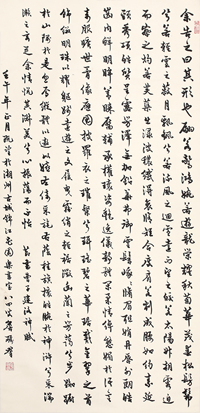 余告之曰其形也翩若驚鴻婉若遊龍榮曜秋菊華茂春松髣髴
兮若輕雲之蔽月飄飖兮若流風之迴雪遠而望之皎若太陽升朝霞迫
而察之灼若芙蕖出淥波穠纖得衷脩短合度肩若削成腰如約素延
頸秀項皓質呈露芳澤無加鉛華弗御雲髻峨峨脩眉聯娟丹脣外朗皓
齒內鮮明眸善睞靨輔承權瓌姿艷逸儀靜體閑柔情綽態媚於語言
奇服曠世骨像應圖披羅衣之璀粲兮珥瑤碧之華琚戴金翠之首
飾綴明珠以耀軀踐遠遊之文履曳霧綃之輕裾微幽蘭之芳藹兮步踟躕
於山隅於是忽焉縱體以遨以嬉左倚采旄右蔭桂旗攘皓腕於神滸兮采湍
瀨之玄芝余情悅其淑美兮心振蕩而不怡 節書曹子建洛神賦
壬午年正月 於湖州古城錦江